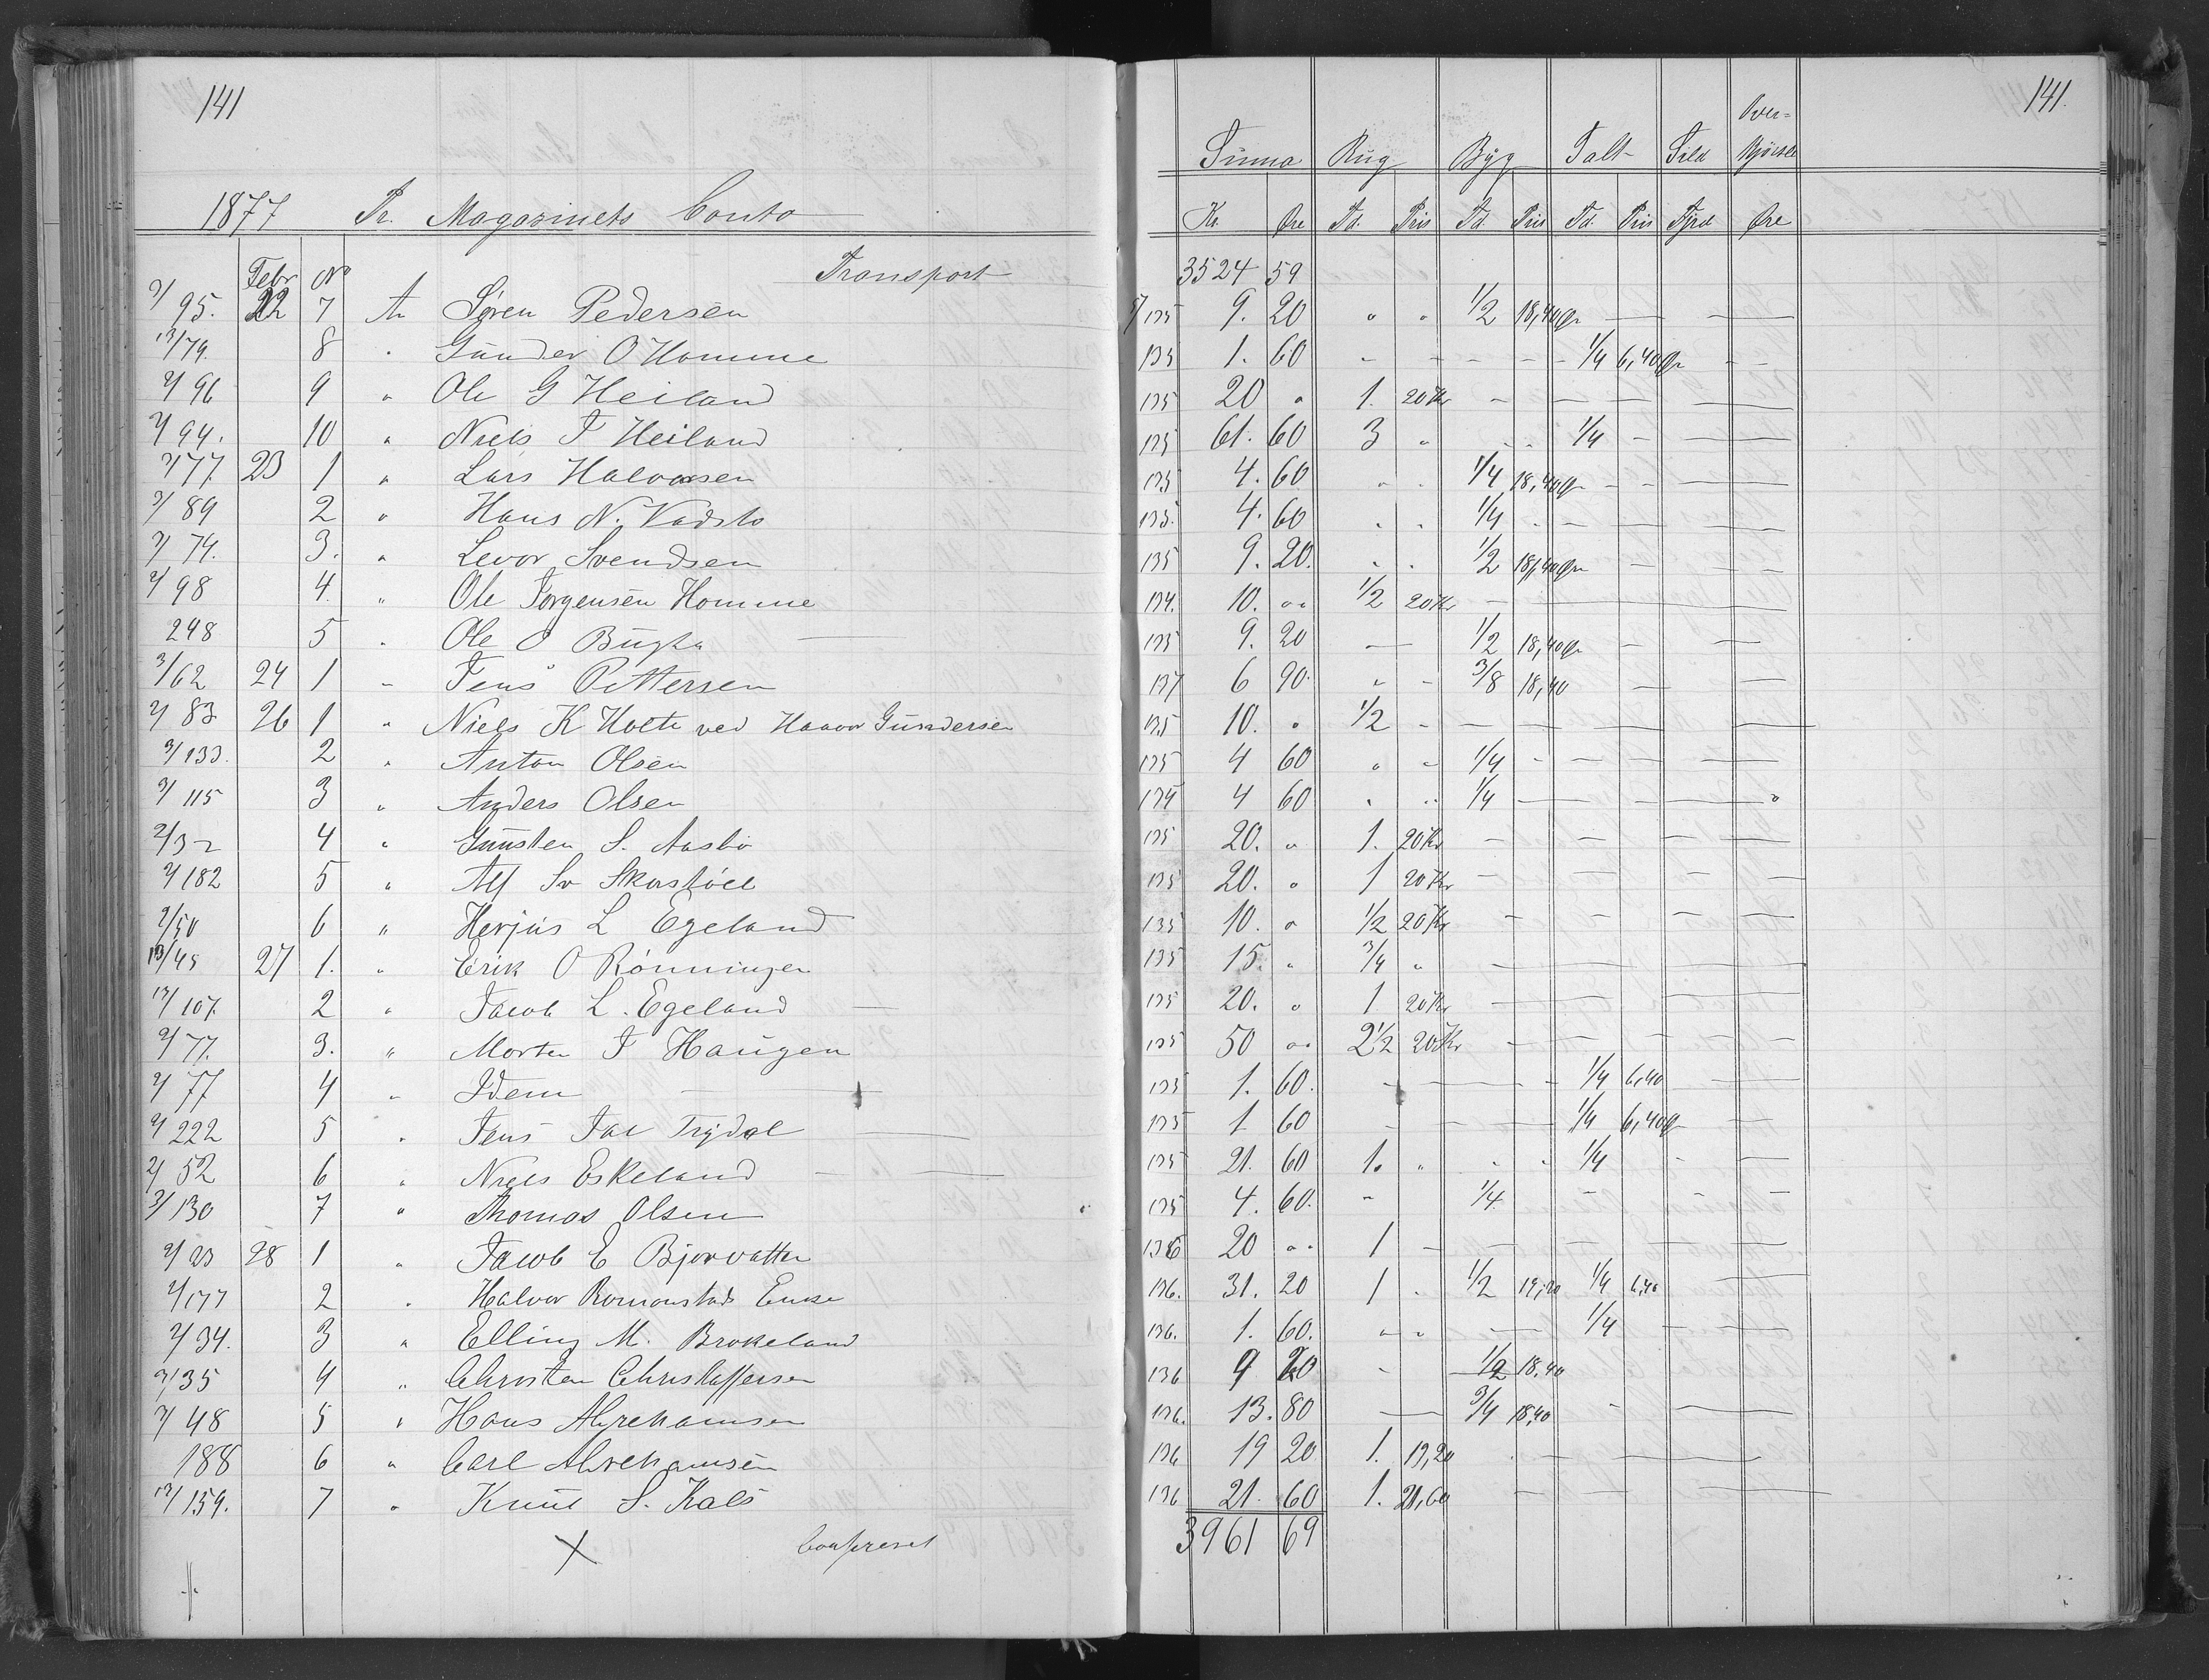 141
1877 Pr. Magazinets Conto
Febr No Transport
2/95. 22 7 An Søren Pedersen
13/79. 8 " Gunder O Homme
2/96 9 " Ole G Heiland
2/94. 10 " Niels T Heiland
2/77 23 1 " Lars Halvorsen
3/89 2 " Hans N. Vadsto
2/74. 3. " Levor Svendsen
2/98 4. " Ole Torgensen Homme
248 5 " Ole O Bugta
3/62 24 1 " Jens Pettersen
2/83 26 1 " Niels K Holte ved Haavor Gundersen
3/133. 2 " Anton Olsen
3/115 3 " Anders Olsen
2/32 4 " Gunsten S. Aasbö
2/182 5 " Alf Sv
2/50 6 " Herjus L Egeland
13/45 27 1. " Erik O Rönningen
13/107. 2 " Jacob L. Egeland
2/77. 3. " Morten T Haugen
2/77 4 " Idem
2/222 5 " Jens Jac Trydal
2/52 6 " Niels Eskeland
3/130 7 " Thomas Olsen
2/23 28 1 " Jacob E Bjorvatten
2/177 2 " Halvor Enke
2/34. 3 " Elling M. Brokeland
2/35 4 " Christen Christoffersen
2/48 5 " Hans Abrehamsen
188 6 " Carl Abrehamsen
13/159. 7 " Knut S. Kals
X
141.
Summa Rug Byg Salt Sild Over-
Kr. Øre Td. Pris Td. Pris Td. Pris Fjrd Øre
3524 59
135 9. 20 " " 1/2 18,40 Ør — —
135 1. 60 - - - - 1/4 6,40 Ør - -
135 20 " 1. 20 Kr — — — —
135 61. 60 3 " " " 1/4 — —
135 4. 60 " " 1/4 18,40 Ør - - —
135. 4. 60 " " 1/4 " - - —
135 9. 20. " " 1/2 18,40 Ør — - -
134. 10. "" 1/2 20 Kr —
135 9. 20 — 1/2 18,40 Ør — —
137 6 90. " - 3/8 18,40 — —
135 10. " 1/2 - — — — —
135 4 60 " - 1/4 - — — —
134 4 60 " " 1/4 — — — "
135 20. " 1. 20 Kr — — — —
135 20. " 1 20 Kr — — — —
135 10. " 1/2 20 Kr — — — —
135 15. " 3/4 " — — —
135 20. " 1 20 Kr — — —
135 50 "" 2 1/2 20 Kr — — — —
135 1. 60. — — - 1/4 6,40 —
135 1 60 - — - 1/4 6,40 Ør — —
135 21. 60 1. " " " 1/4 - —
135 4. 60. " 1/4 — — —
136 20 "" 1 - — — — —
136. 31. 20 1 " 1/2 19,20 1/4 6,40 —
136. 1. 60. " " — 1/4 — —
136 9 20 - 1/2 18,40
136. 13. 80 — 3/4 18,40 - —
136 19 20 1. 19,20 - — —
136 21. 60 1. 21,60 — — — —
3961 69